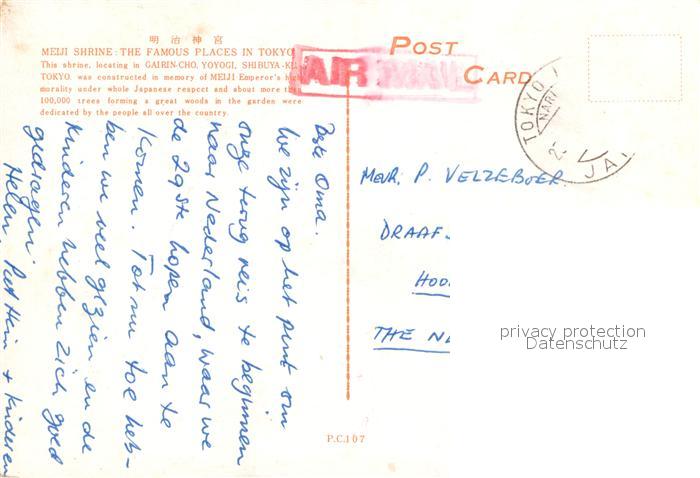 明治神宮
MEIJI SHRINE: THE FAMOUS PLACES IN TOKYO
This shrine, locating in GAIRIN-CHO, YOYOGI, SHIBUYA-
TOKYO. was constructed in memory of MEIJI Emperor's high
morality under whole Japanese respcct and about more than
100,000 trees forming a great woods in the garden were
dedicated by the people all over the country.
AIR MAIL
POST
CARD
TOKYO
NARI
JA
Beste Oma.
We zijn op het punt om
onze terug reis te beginnen
naar Nederland, waar we
de 29ste hopen aan te
komen. Tot nu toe heb-
ben we veel gezien en de
kinderen hebben zich goed
gedragen.
Helen, Piet Hein + kinderen
MEVR. P. VELZEBOER
DRAAF
HOO
THE NE
privacy protection
Datenschutz
P.C.107